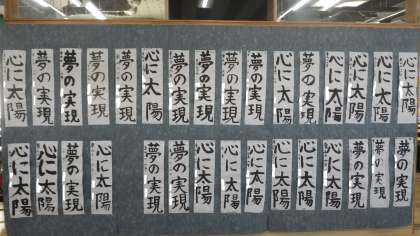 心に太陽
夢の実現
夢の実現
夢の実現
夢の実現
心に太陽
夢の実現
夢の実現
夢の実現
夢の実現
心に太陽
夢の実現
心に太陽
心に太陽
心に太陽
心に太陽
心に太陽
心に太陽
夢の実現
心に太陽
夢の実現
夢の実現
心に太陽
心に太陽
心に太陽
心に太陽
心に太陽
心に太陽
夢の実現
夢の実現
夢の実現